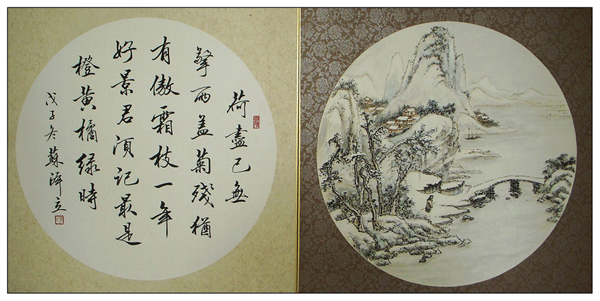 荷盡已無
擎雨盖菊殘猶
有傲霜枝一年
好景君須記最是
橙黃橘緑時
戊子冬蘇立